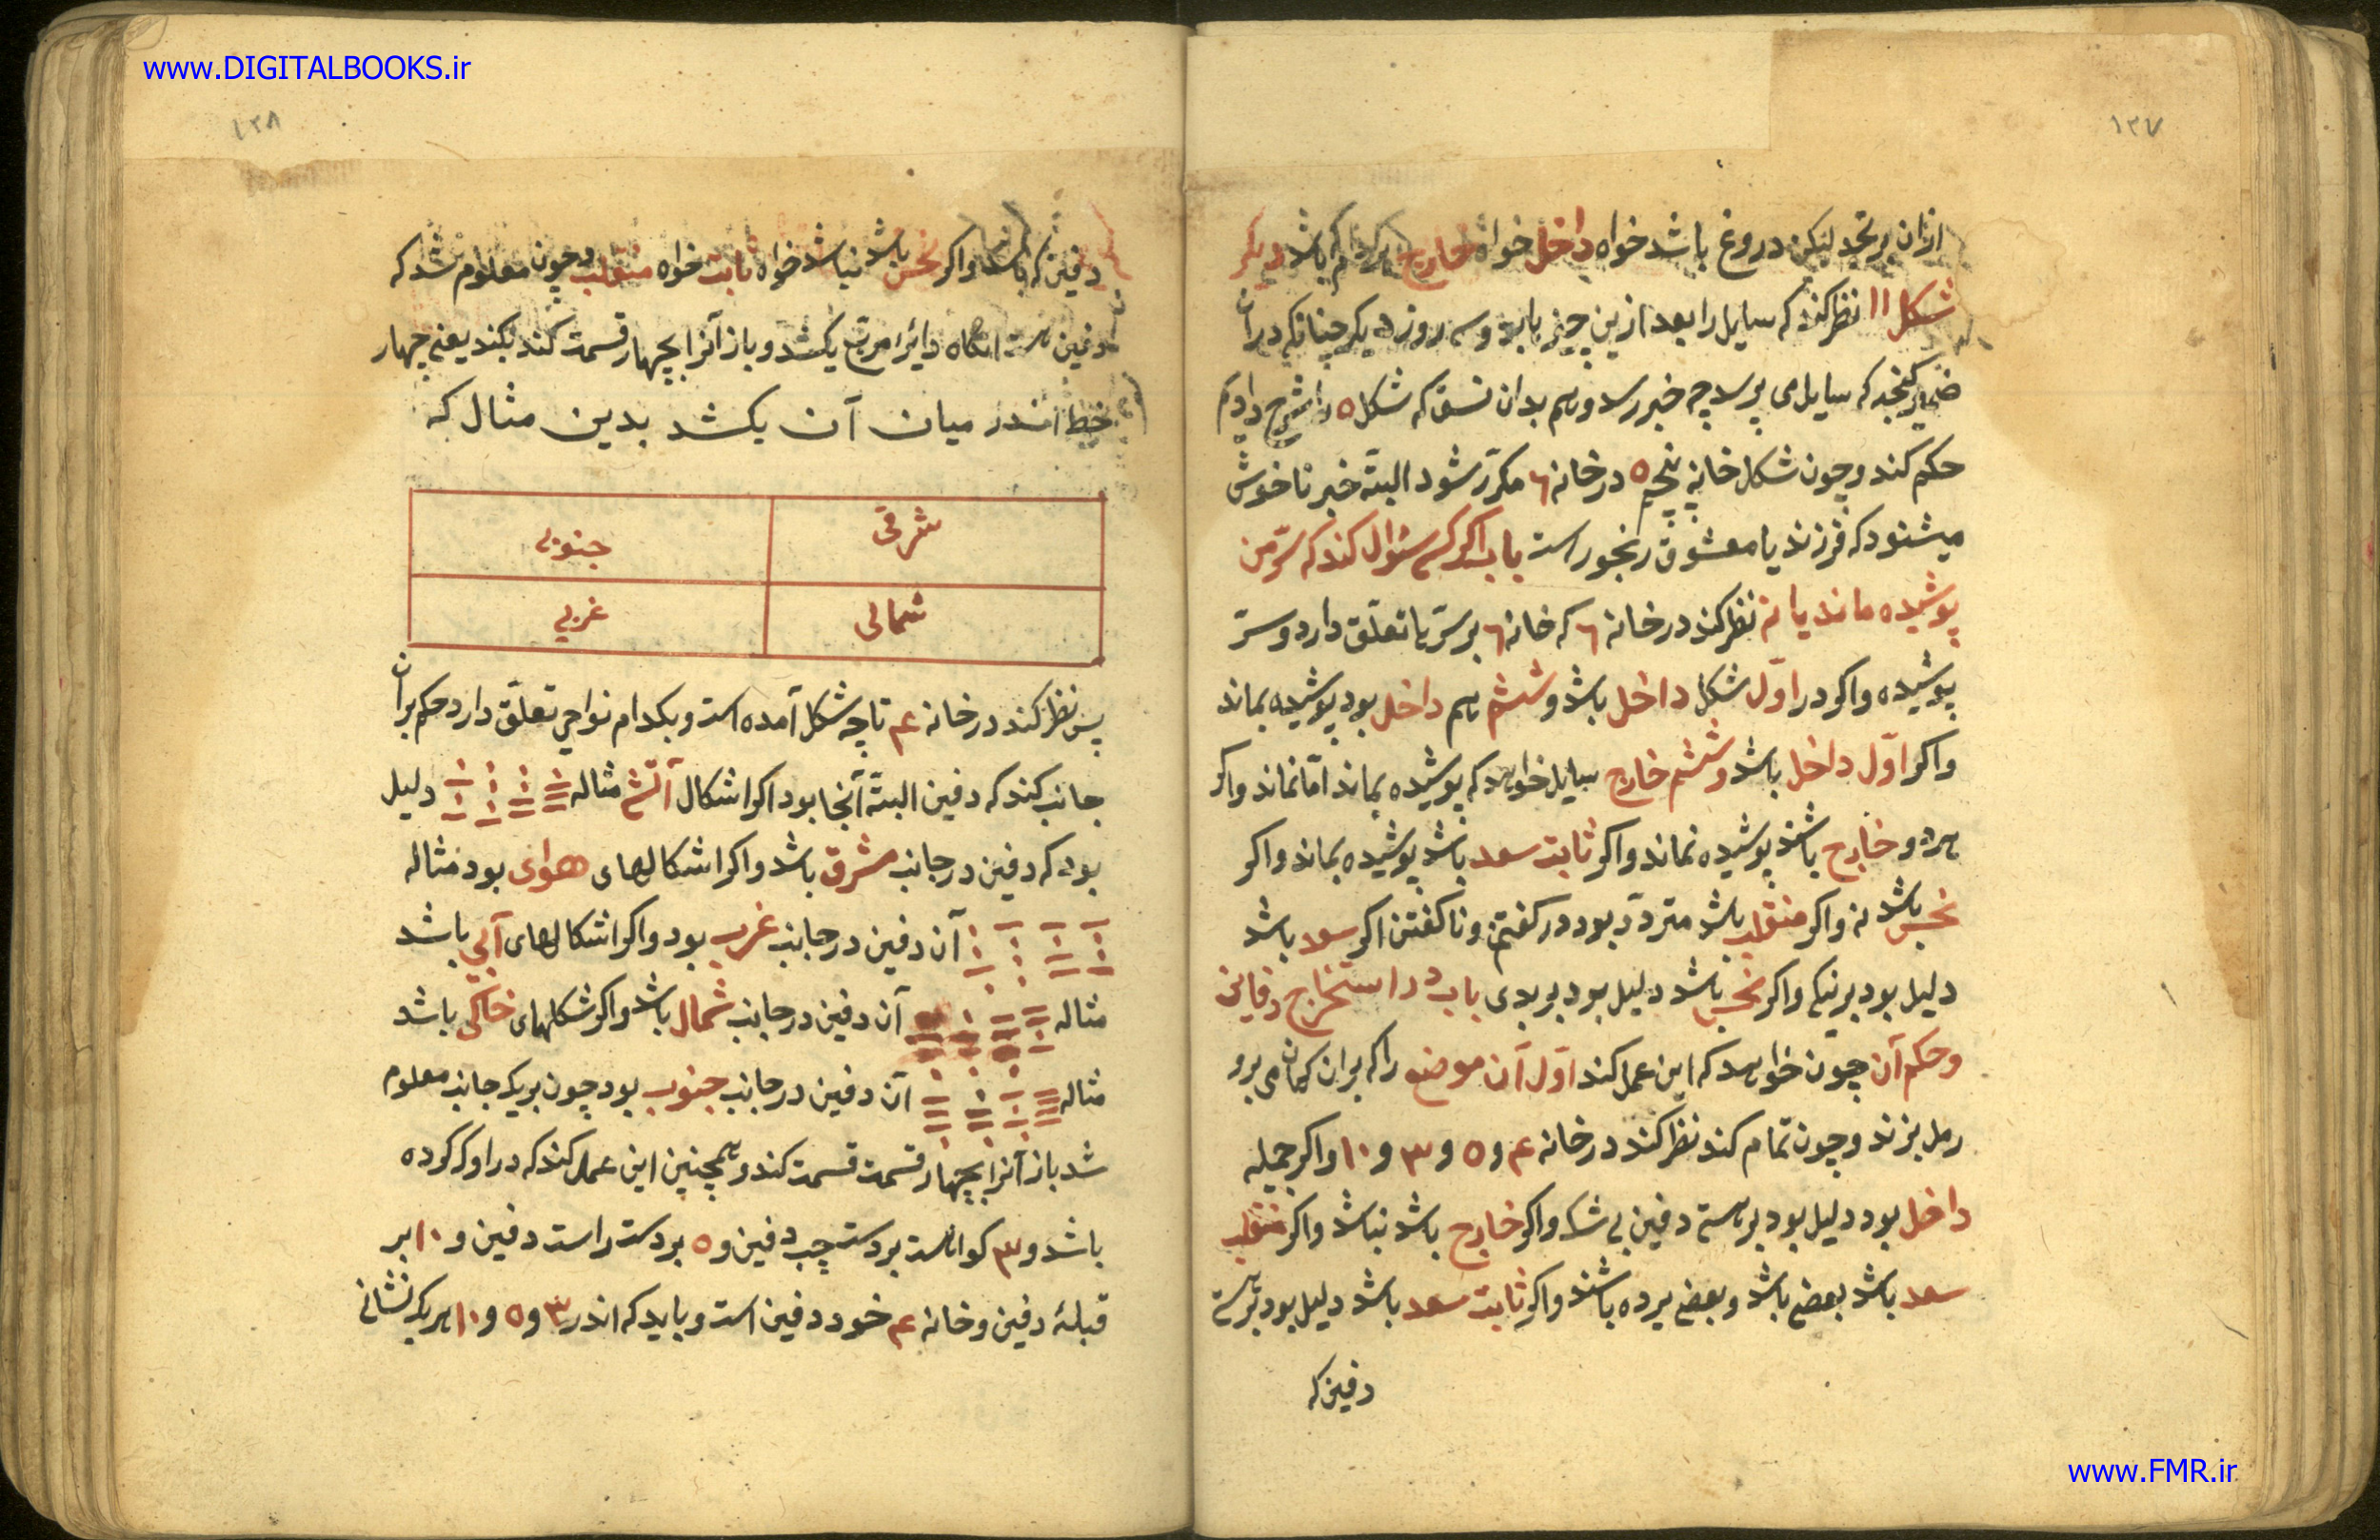 www.DIGITALBOOKS.ir
۱۳۷
ازان برنجد لیکن دروغ باشد خواه داخل خواه خارج هرکدام که باشد دیگر
شکل ۱۱ نظر کند که سایل را بعد ازین چیز باید و سه روزه دیگر چنانکه دران
ضمیر کنجد که سایل می پرسد چه خبر رسد و هم بدان نسق که شکل ۵ را شرح دادم
حکم کند و چون شکل خانه پنجم ۵ در خانه ۶ مکرّر شود البتّه خبر ناخوش
میشنود که فرزند یا معشوق رنجور است باب اگر کسی سئوال کند که سرّ من
پوشیده ماند یا نه نظر کند در خانه ۶ که خانه ۶ بر سرّ با تعلّق دارد و سرّ
پوشیده واکر در اوّل شکل داخل باشد و ششم هم داخل بود پوشیده بماند
واکر اوّل داخل باشد و ششم خارج سایل خواهد که پوشیده بماند امّا نماند واکر
هر دو خارج باشند پوشیده نماند واکر ثابت سعد باشد پوشیده بماند واکر
نحس باشد نه واکر منقلب باشد متردّد بود در کفتن و ناکفتن اکر سعد باشد
دلیل بود بر نیکی واکر نحس باشد دلیل بود بر بدی باب در استخراج دفائن
و حکم آن چون خواهد که این عمل کند اوّل آن موضع را که بران کمان می برد
رمل بزند و چون تمام کند نظر کند در خانه ۴ و ۵ و ۳ و ۱۰ واکر جمیله
داخل بود دلیل بود بر هستی دفین بی شک واکر خارج باشد نباشد واکر منقلب
سعد باشد بعضی باشد و بعضی برده باشند واکر ثابت سعد باشد دلیل بود بر هستی
دفین که
۱۳۸
دفین که باشد واکر نحس باشد نباشد خواه ثابت خواه منقلب و چون معلوم شد که
دفین هست انکاه دائرا مربّع بکشد و باز آنرا بچهار قسمت کند بکند یعنی چهار
خط اندر میان آن بکشد بدین مثال که
شرقی جنوبی
شمالی غربی
پس نظر کند در خانه ۴ تا چه شکل آمده است و بکدام نواحی تعلّق دارد حکم بران
جانب کند که دفین البتّه آنجا بود اکر اشکال آتشی مثاله دلیل
بود که دفین در جانب مشرق باشد واکر اشکالهای هوای بود مثاله
آن دفین در جانب غرب بود واکر اشکالهای آبی باشد
مثاله آن دفین در جانب شمال باشد واکر شکلهای خاکی باشد
مثاله آن دفین در جانب جنوب بود چون بر یک جانب معلوم
شد باز آنرا بچهار قسمت قسمت کند و همچنین این عمل کند که در او کرده
باشد و ۳ کواهست بر دست چپ دفین و ۵ بر دست راست دفین و ۱۰ بر
قبلهٔ دفین و خانه ۴ خود دفین است و باید که اندر ۳ و ۵ و ۱۰ هر یک نشانی
www.FMR.ir